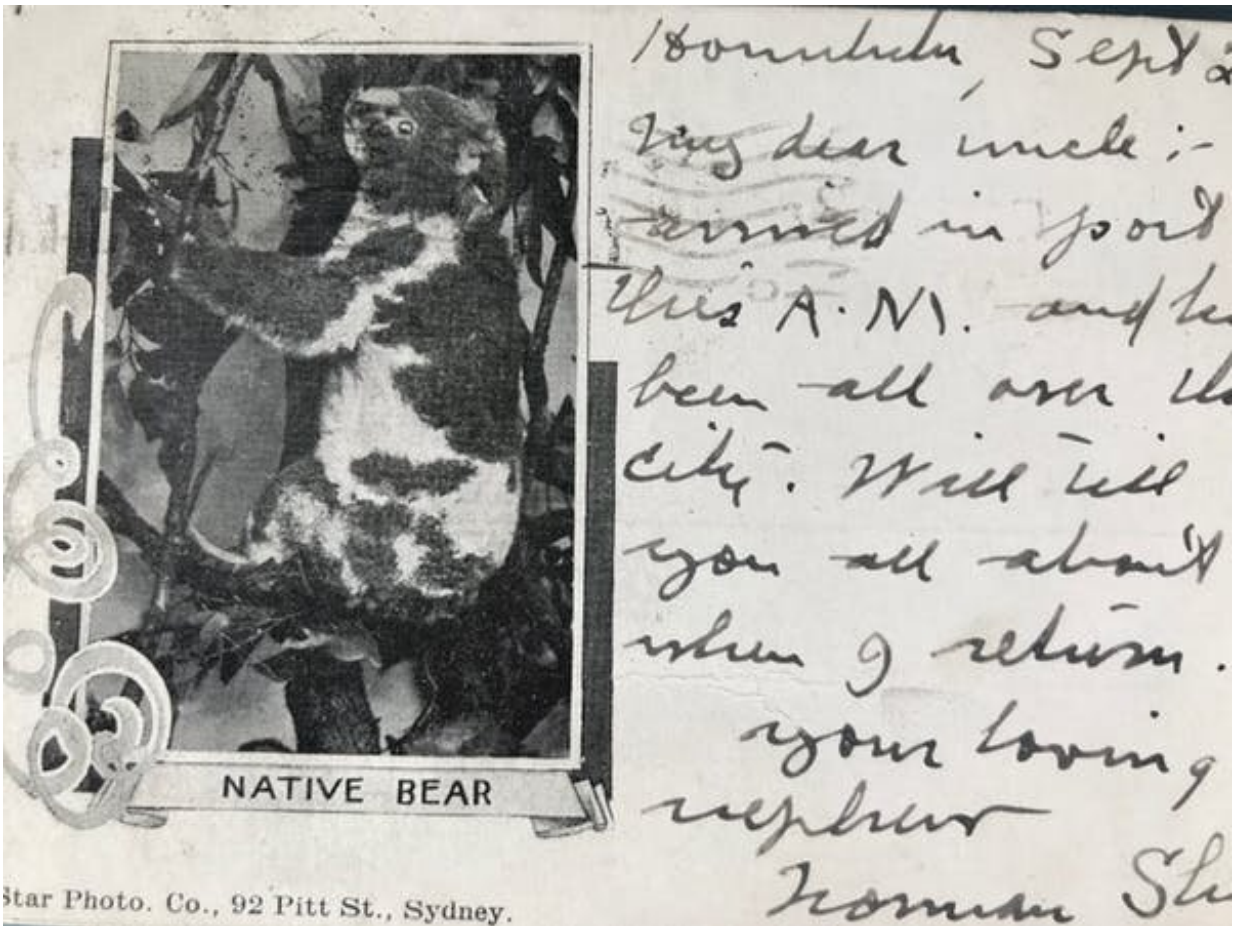 NATIVE BEAR
Star Photo. Co., 92 Pitt St., Sydney.
Honolulu, Sept 2
My dear uncle :-
arrived in port
this A.M. and ha
been all over th
city. Will tell
you all about
when I return.
your loving
nephew
Norman